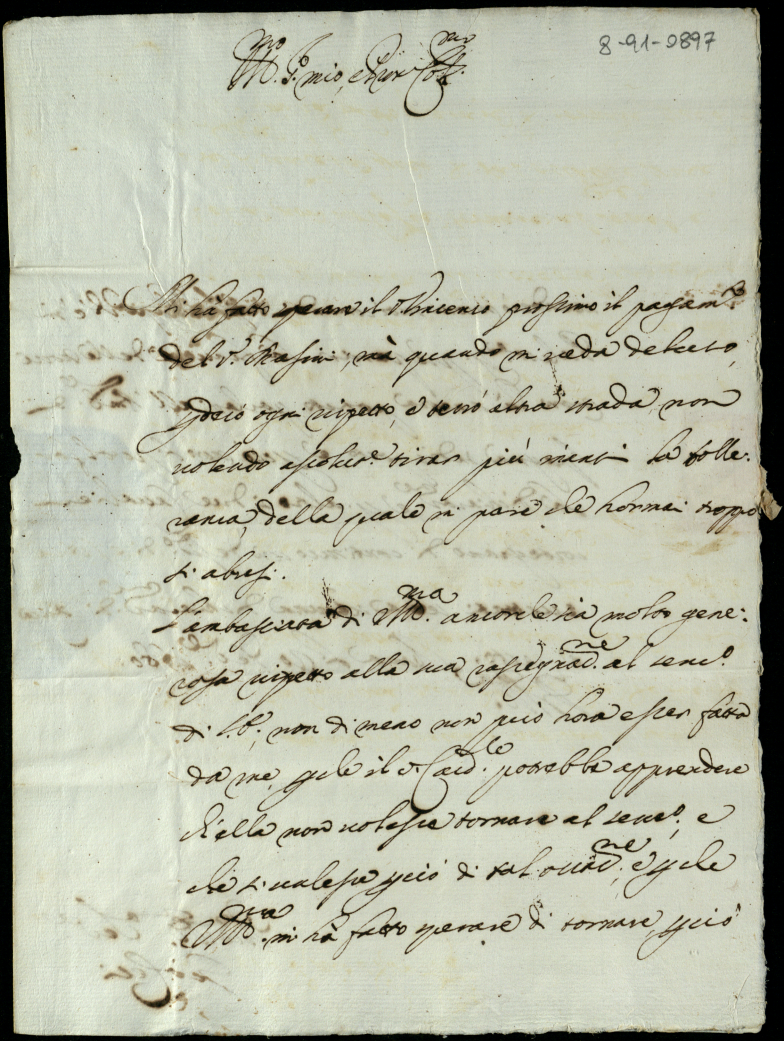 8-91-0897
Mi hà fatto sperare il S. Vincenzo prossimo il pagam.to
del S.r Masini, mà quando mi veda deluso,
ogni rispetto, e terrò altra strada, non
volendo asolut.e tirar più inanti la tolle-
ranza, della quale mi pare che hormai troppo
si abusi.
L'ambasciata di M.ma ancorche sia molto gene-
rosa rispetto alla sua rassegnaz.ne al serv.o
di non di meno non può hora esser fatta
da me, p che il S. Card.le potrebbe apprendere
ch'ella non volesse tornare al serv.o, e
che si valesse p ciò di tal occas.ne, e p che
M.ma mi hà fatto sperare di tornare, p ciò